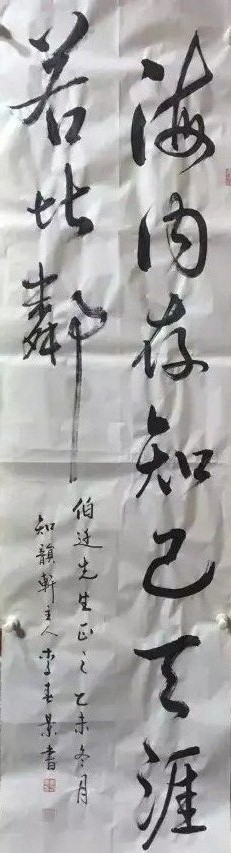 海内存知己天涯
若比鄰
伯廷先生正之乙未冬月
知韻軒主人李春景書